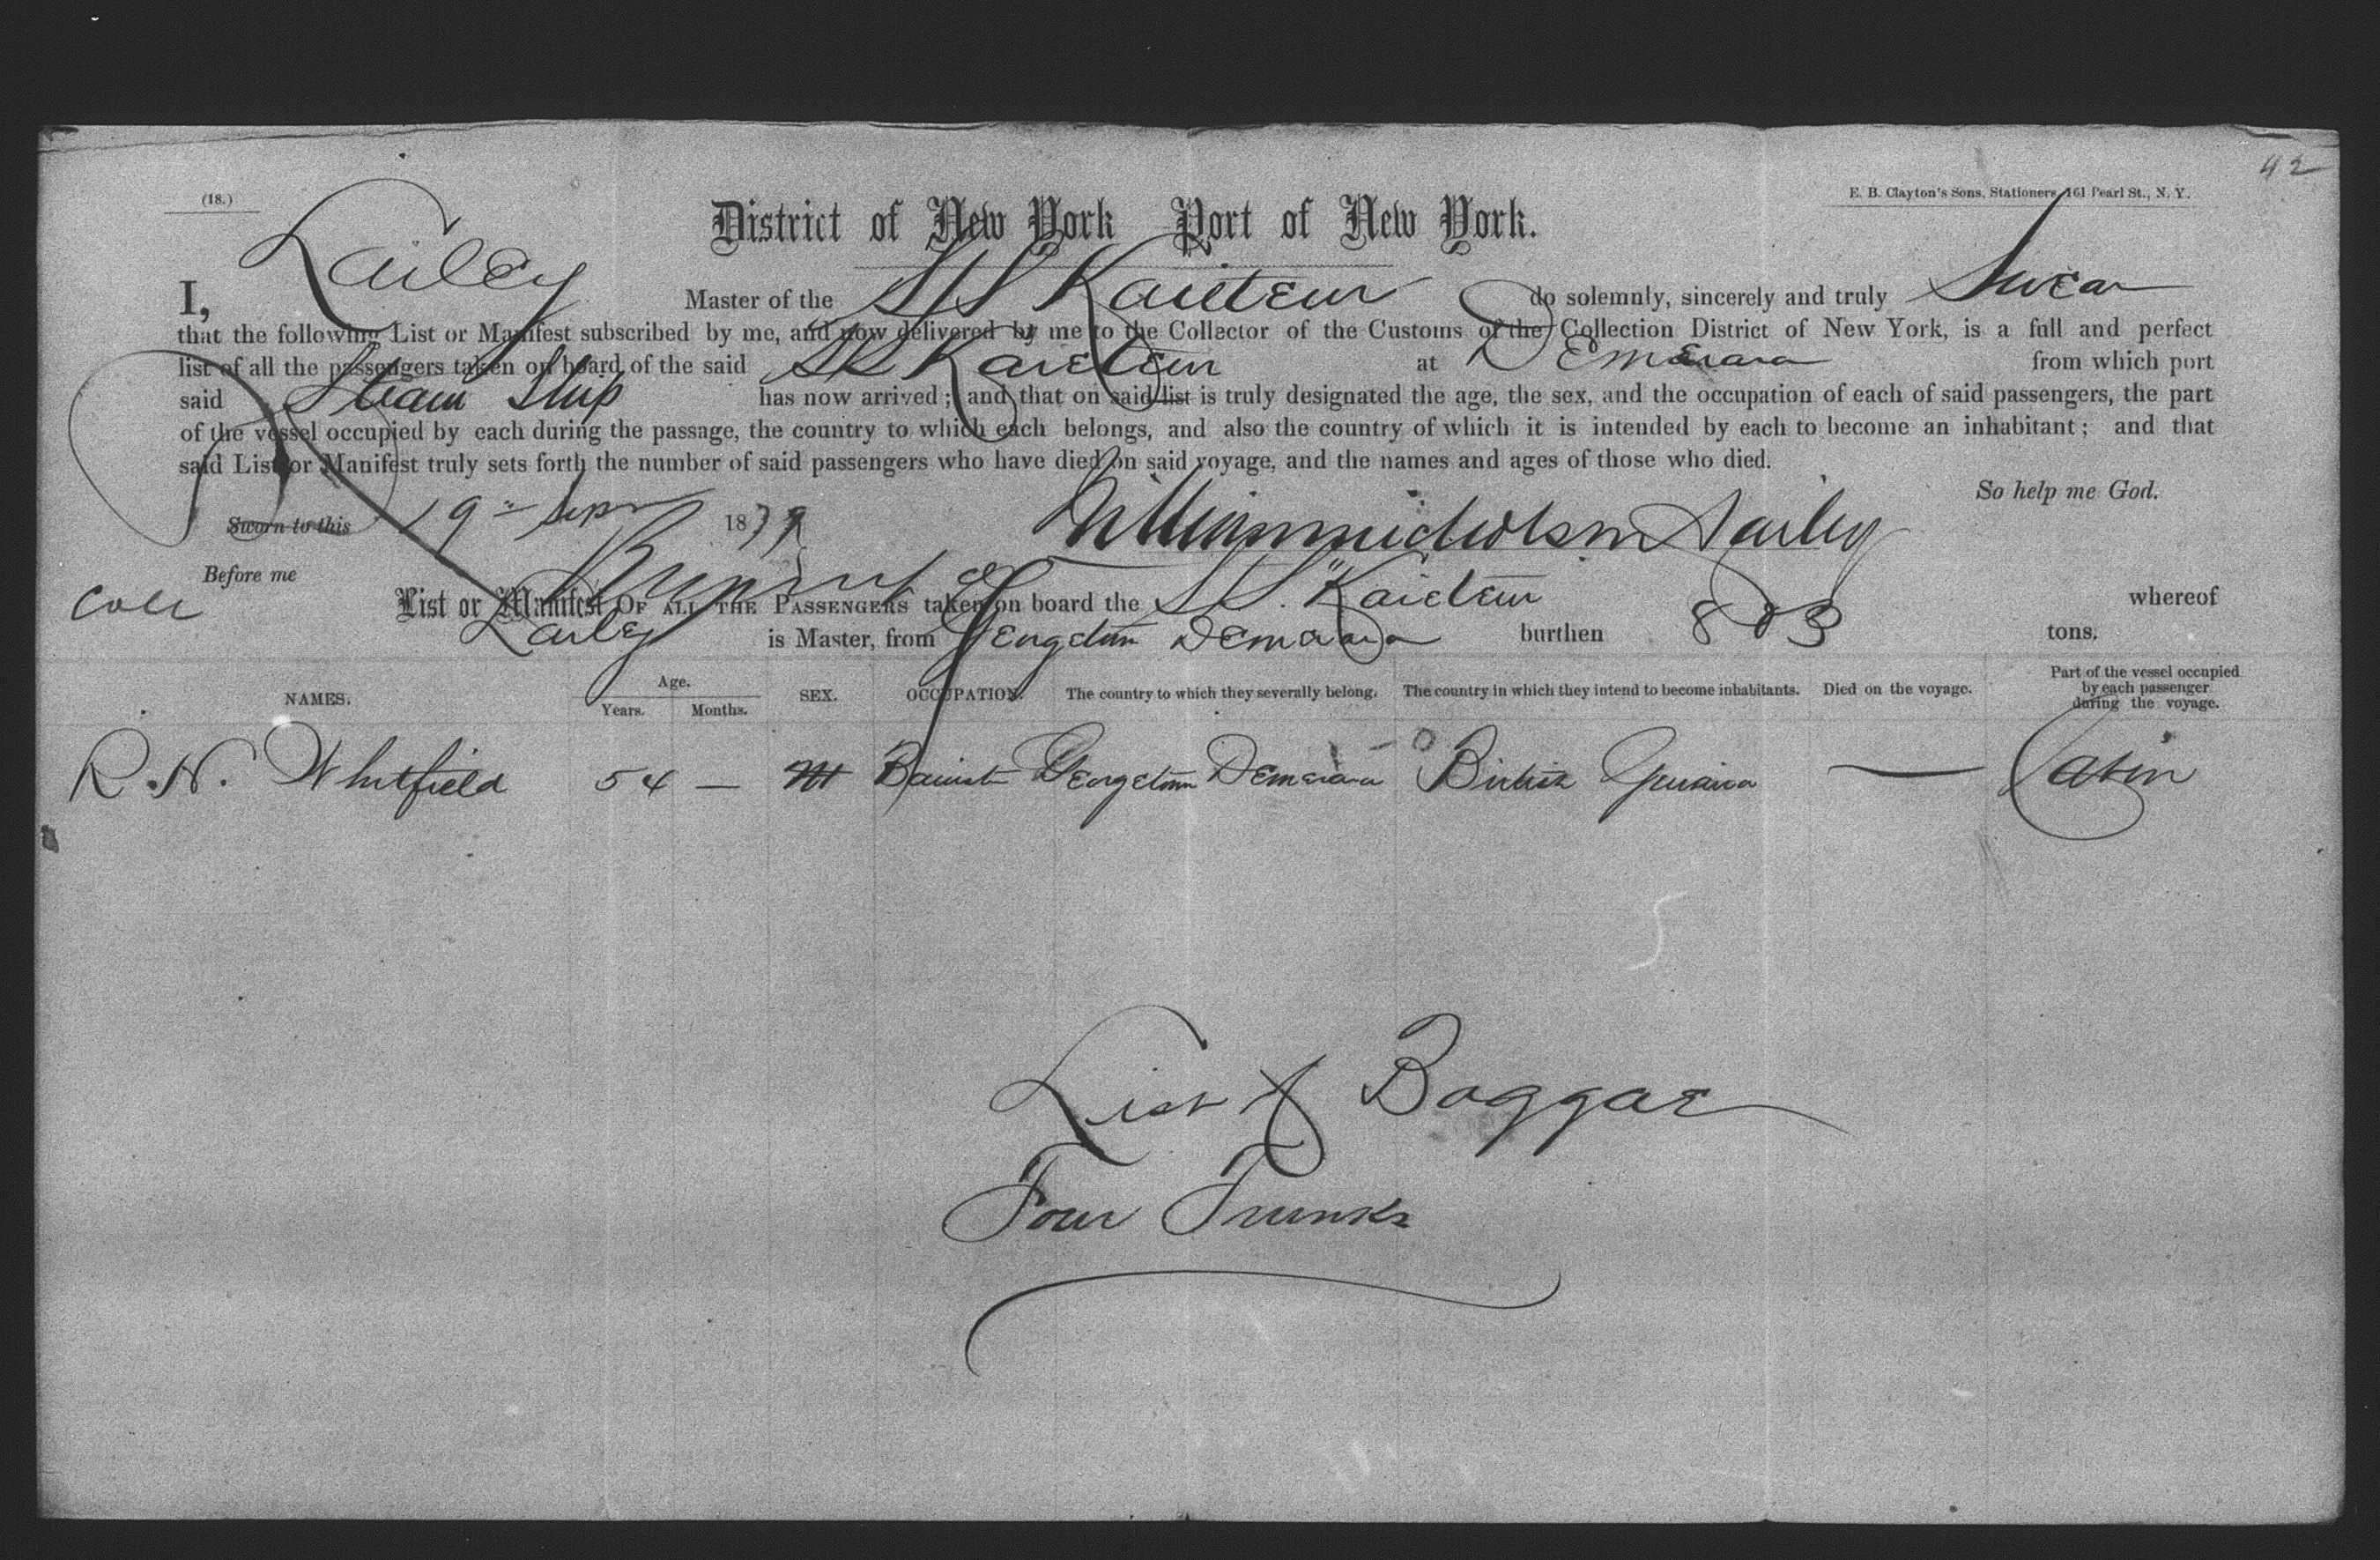 42
(18.)
E. B. Clayton's Sons, Stationers, 161 Pearl St., N. Y.
District of New York Port of New York.
I, Lailey Master of the S/S Kaieteur do solemnly, sincerely and truly Swear
that the following List or Manifest subscribed by me, and now delivered by me to the Collector of the Customs of the Collection District of New York, is a full and perfect
list of all the passengers taken on board of the said SS Kaieteur at Demerara from which port
said Steam Ship has now arrived; and that on said list is truly designated the age, the sex, and the occupation of each of said passengers, the part
of the vessel occupied by each during the passage, the country to which each belongs, and also the country of which it is intended by each to become an inhabitant; and that
said List or Manifest truly sets forth the number of said passengers who have died on said voyage, and the names and ages of those who died.
So help me God.
Sworn to this 19th Sepr 1879 William Nicholson Lailey
Before me
List or Manifest OF ALL THE PASSENGERS taken on board the S.S. "Kaieteur whereof
Lailey is Master, from Georgetown Demerara burthen 803 tons.
NAMES. Age. Years. Months. SEX. OCCUPATION. The country to which they severally belong. The country in which they intend to become inhabitants. Died on the voyage. Part of the vessel occupied by each passenger during the voyage.
R. N. Whitfield 54 — M Barrister Georgetown Demerara British Guiana — Cabin
List of Baggage
Four Trunks